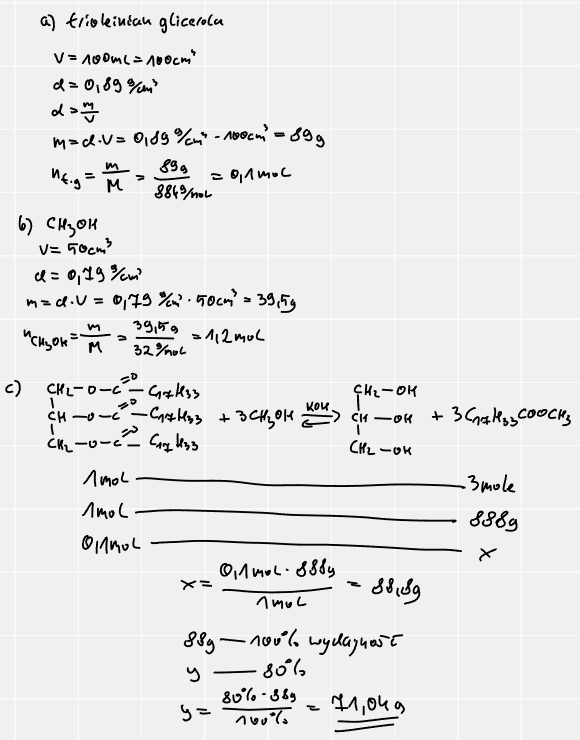 a) trioleinian glicerolu
V = 100mL = 100cm³
d = 0,89 g/cm³
d = m/V
m = d·V = 0,89 g/cm³ · 100cm³ = 89g
n_t.g = m/M = 89g/884g/moL = 0,1moL
b) CH₃OH
V = 50cm³
d = 0,79 g/cm³
m = d·V = 0,79 g/cm³ · 50cm³ = 39,5g
n_CH₃OH = m/M = 39,5g/32g/moL = 1,2moL
c) CH₂-O-C(=O)-C₁₇H₃₃ CH₂-OH
CH-O-C(=O)-C₁₇H₃₃ + 3CH₃OH ⇌ KOH CH-OH + 3C₁₇H₃₃COOCH₃
CH₂-O-C(=O)-C₁₇H₃₃ CH₂-OH
1moL — 3mole
1moL — 888g
0,1moL — x
x = 0,1moL·888g/1moL = 88,8g
88g — 100% wydajność
y — 80%
y = 80%·88g/100% = 71,04g